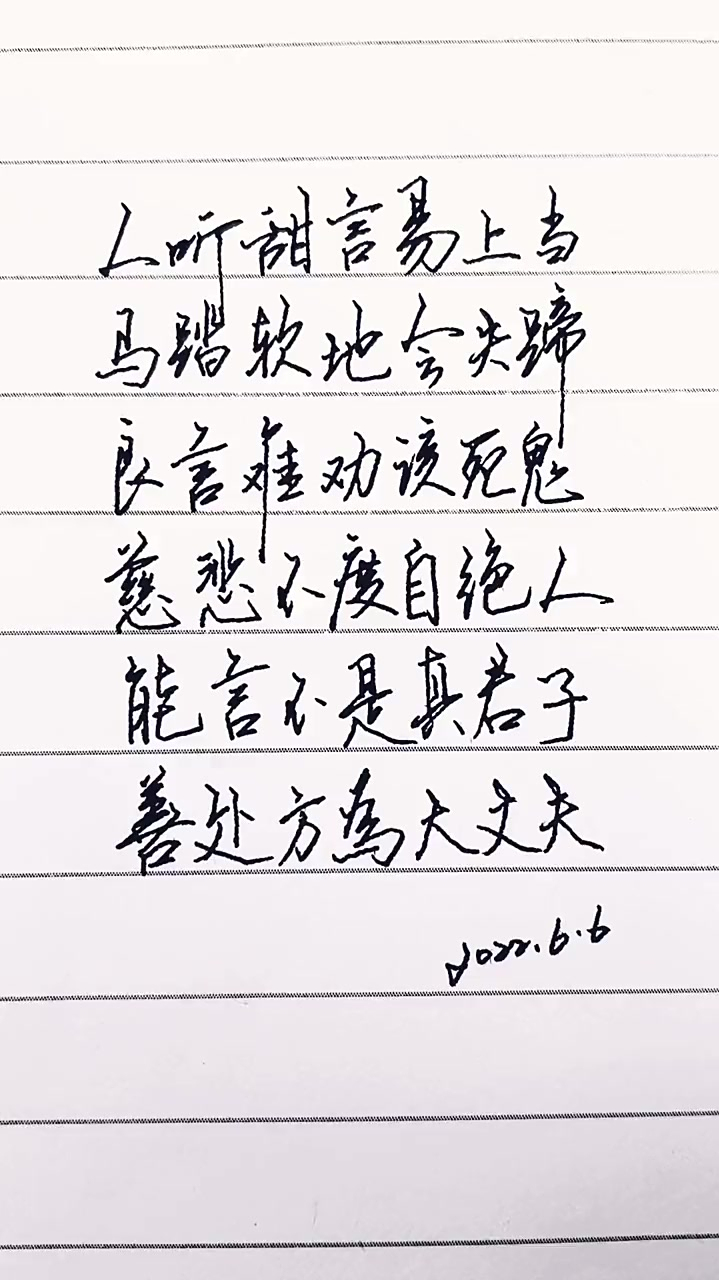 人听甜言易上当
马踏软地会失蹄
良言难劝该死鬼
慈悲不度自绝人
能言不是真君子
善处方為大丈夫
2022.6.6